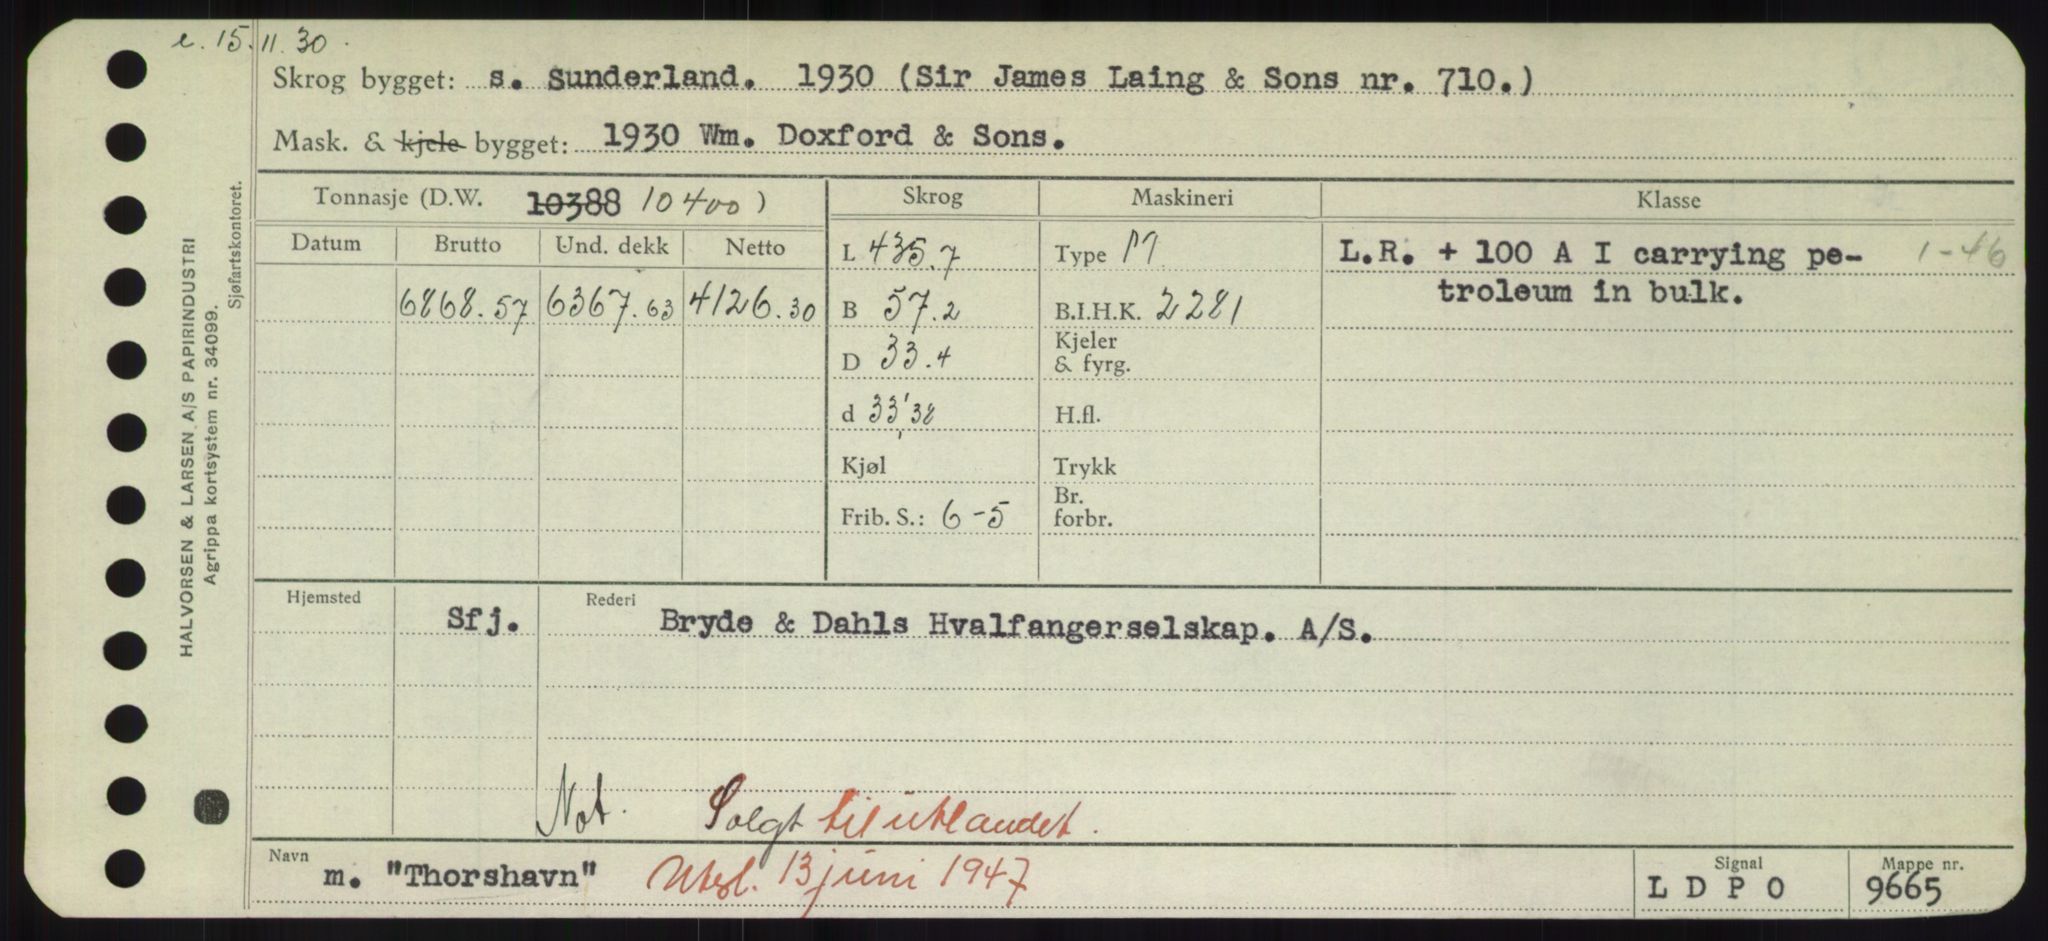 e. 15.11.30.
Skrog bygget: s. Sunderland. 1930 (Sir James Laing & Sons nr. 710.)
Mask. & kjele bygget: 1930 Wm. Doxford & Sons.
Tonnasje (D.W. 10388 10400)
Skrog Maskineri Klasse
Datum Brutto Und. dekk Netto
6868.57 6367.63 4126.30
L 435.7
B 57.2
D 33.4
d 33'38
Kjøl
Frib. S.: 6-5
Type M
B.I.H.K. 2281
Kjeler
& fyrg.
H.fl.
Trykk
Br.
forbr.
L.R. + 100 A I carrying pe- 1-46
troleum in bulk.
Hjemsted Sfj. Rederi Bryde & Dahls Hvalfangerselskap. A/S.
Not. Solgt til utlandet.
Navn m. "Thorshavn" Utsl. 13 juni 1947
Signal LDPO
Mappe nr. 9665
HALVORSEN & LARSEN A/S PAPIRINDUSTRI
Agrippa kortsystem nr. 34099.
Sjøfartskontoret.